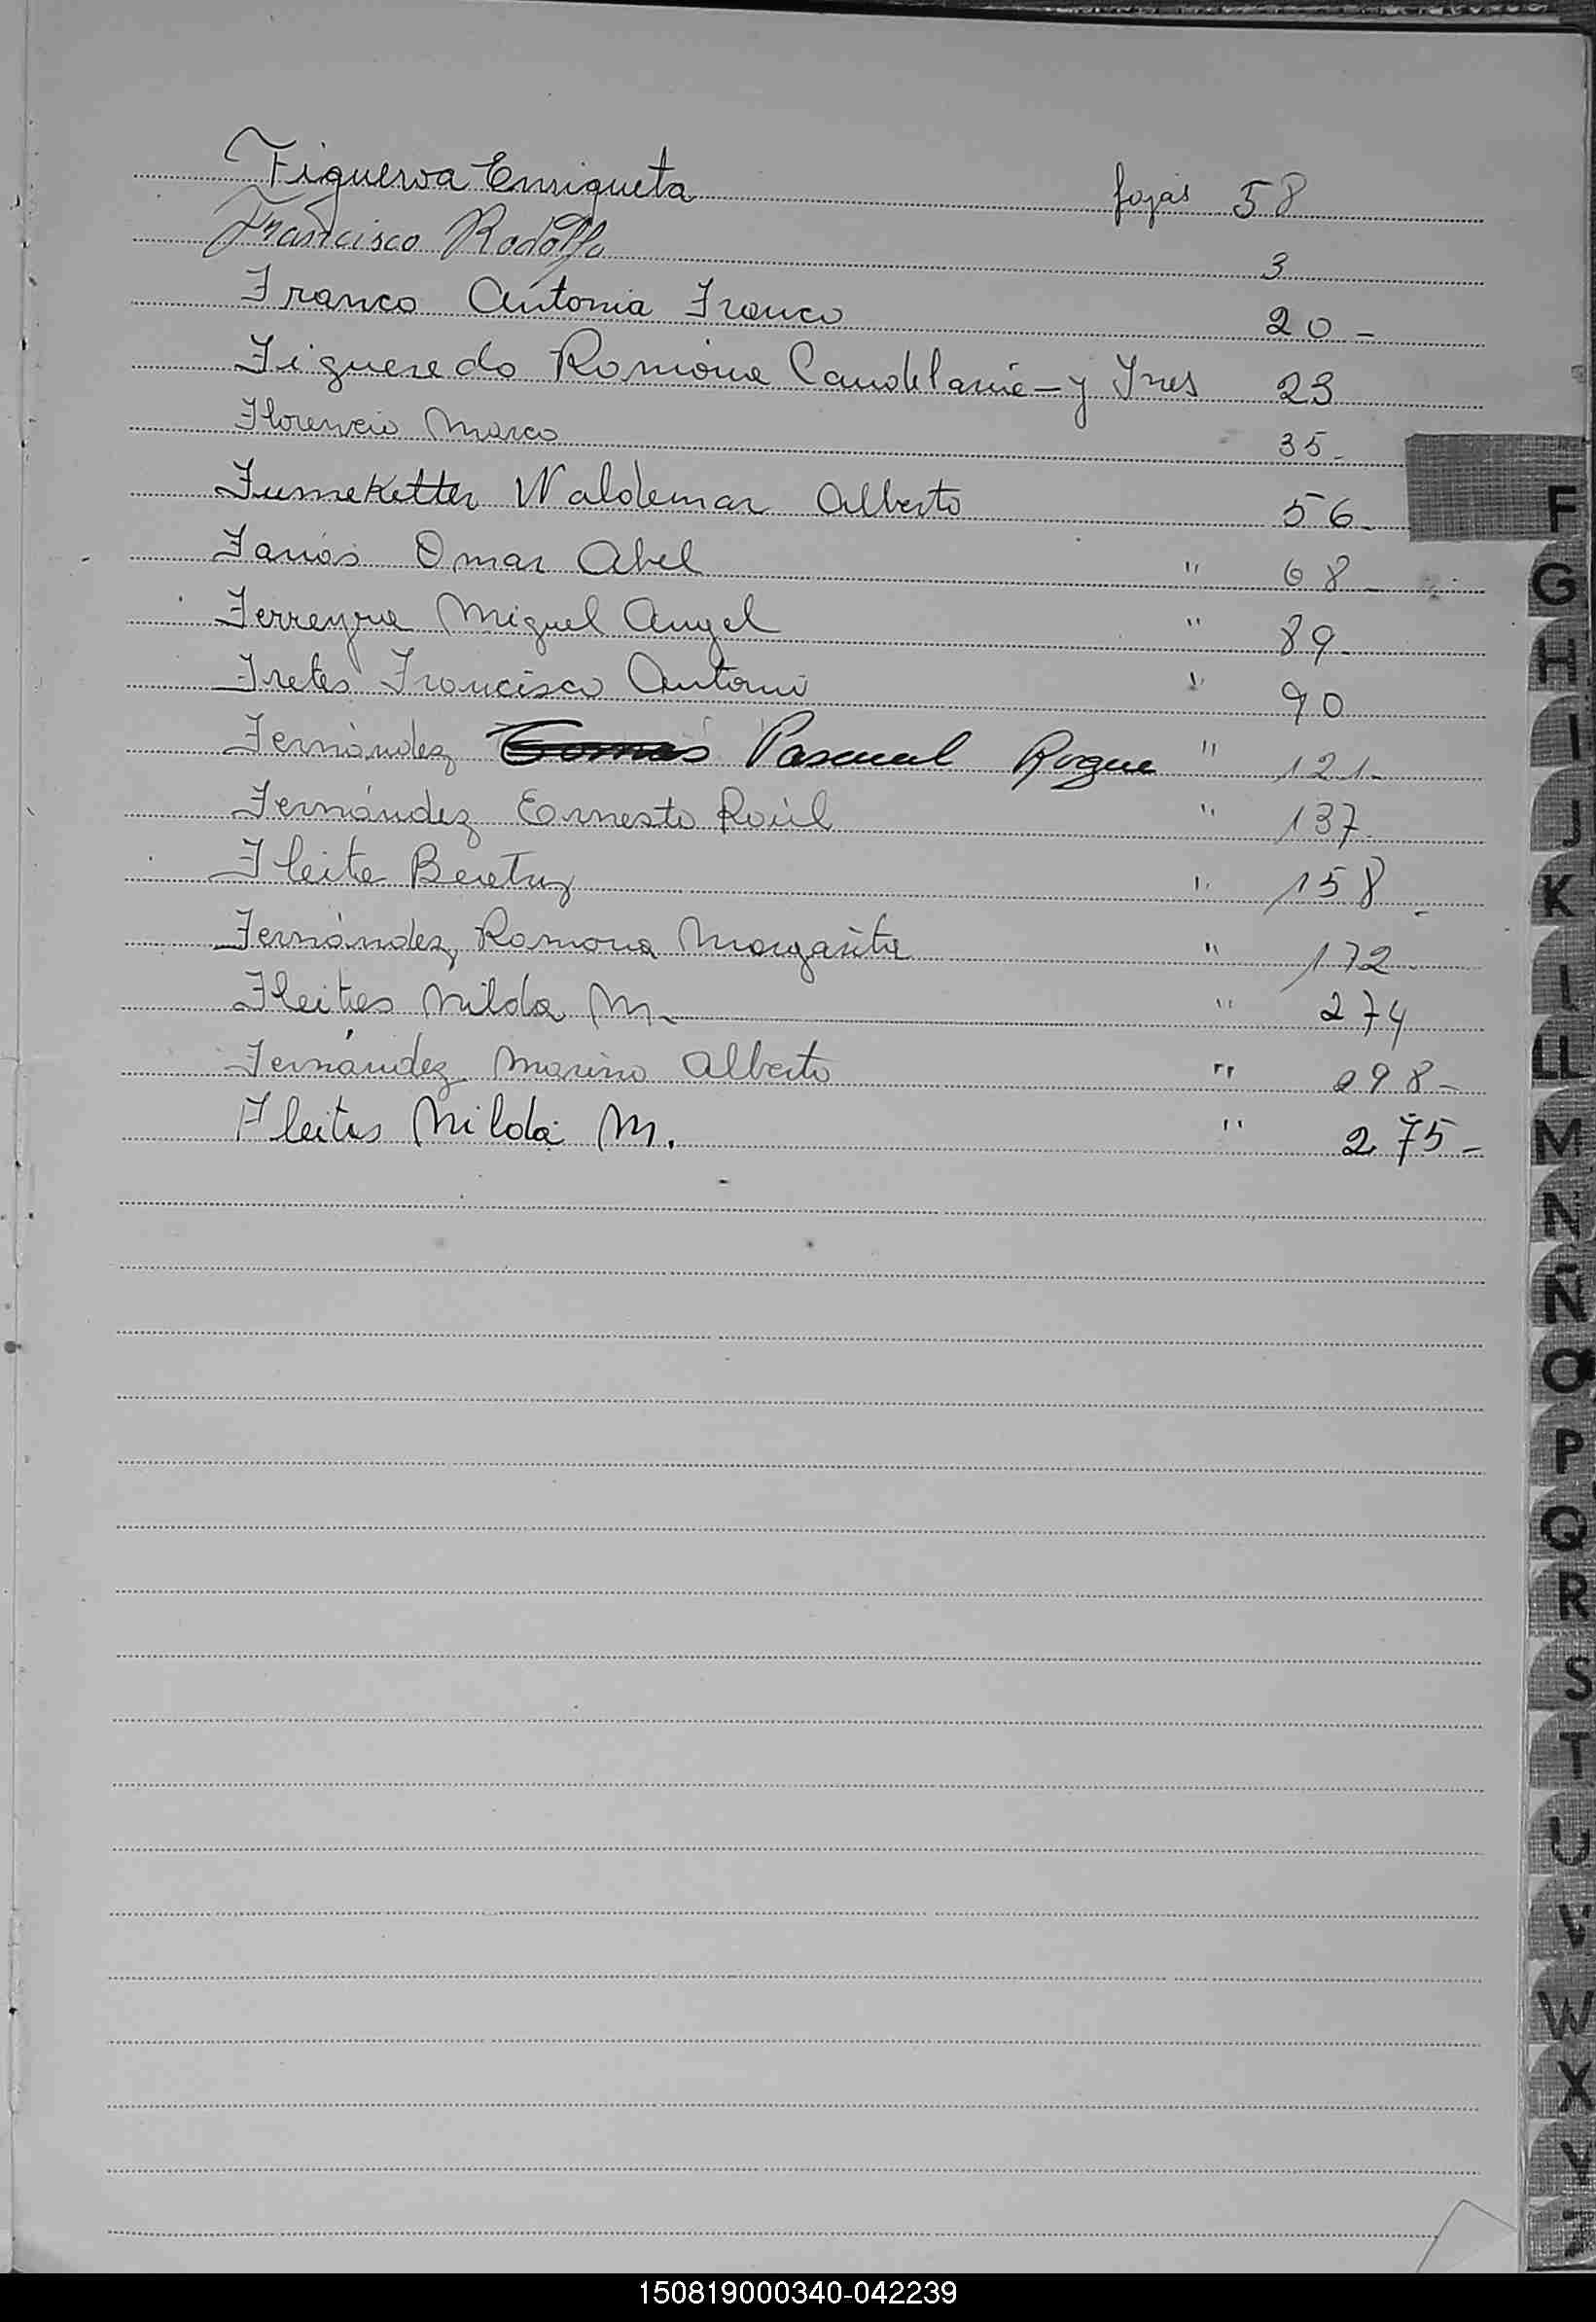 Figueroa Enriqueta fojas 58
Francisco Rodolfo 3
Franco Antonia Franco 20-
Figueredo Ramona Candelaria - y Ines 23
Florencio Marco 35-
Fumeketter Waldemar Alberto 56-
Farias Omar Abel " 68-
Ferreyra Miguel Angel " 89-
Fretes Francisco Antonio " 90
Fernández Tomás Pascual Roque " 121-
Fernández Ernesto Raúl " 137-
Fleita Beatriz " 158-
Fernández, Ramona Margarita " 172-
Fleites Nilda M- " 274
Fernández Marino Alberto " 298-
Fleitas Nilda M. " 275-
F
G
H
I
J
K
L
LL
M
N
Ñ
O
P
Q
R
S
T
U
V
W
X
Y
Z
150819000340-042239